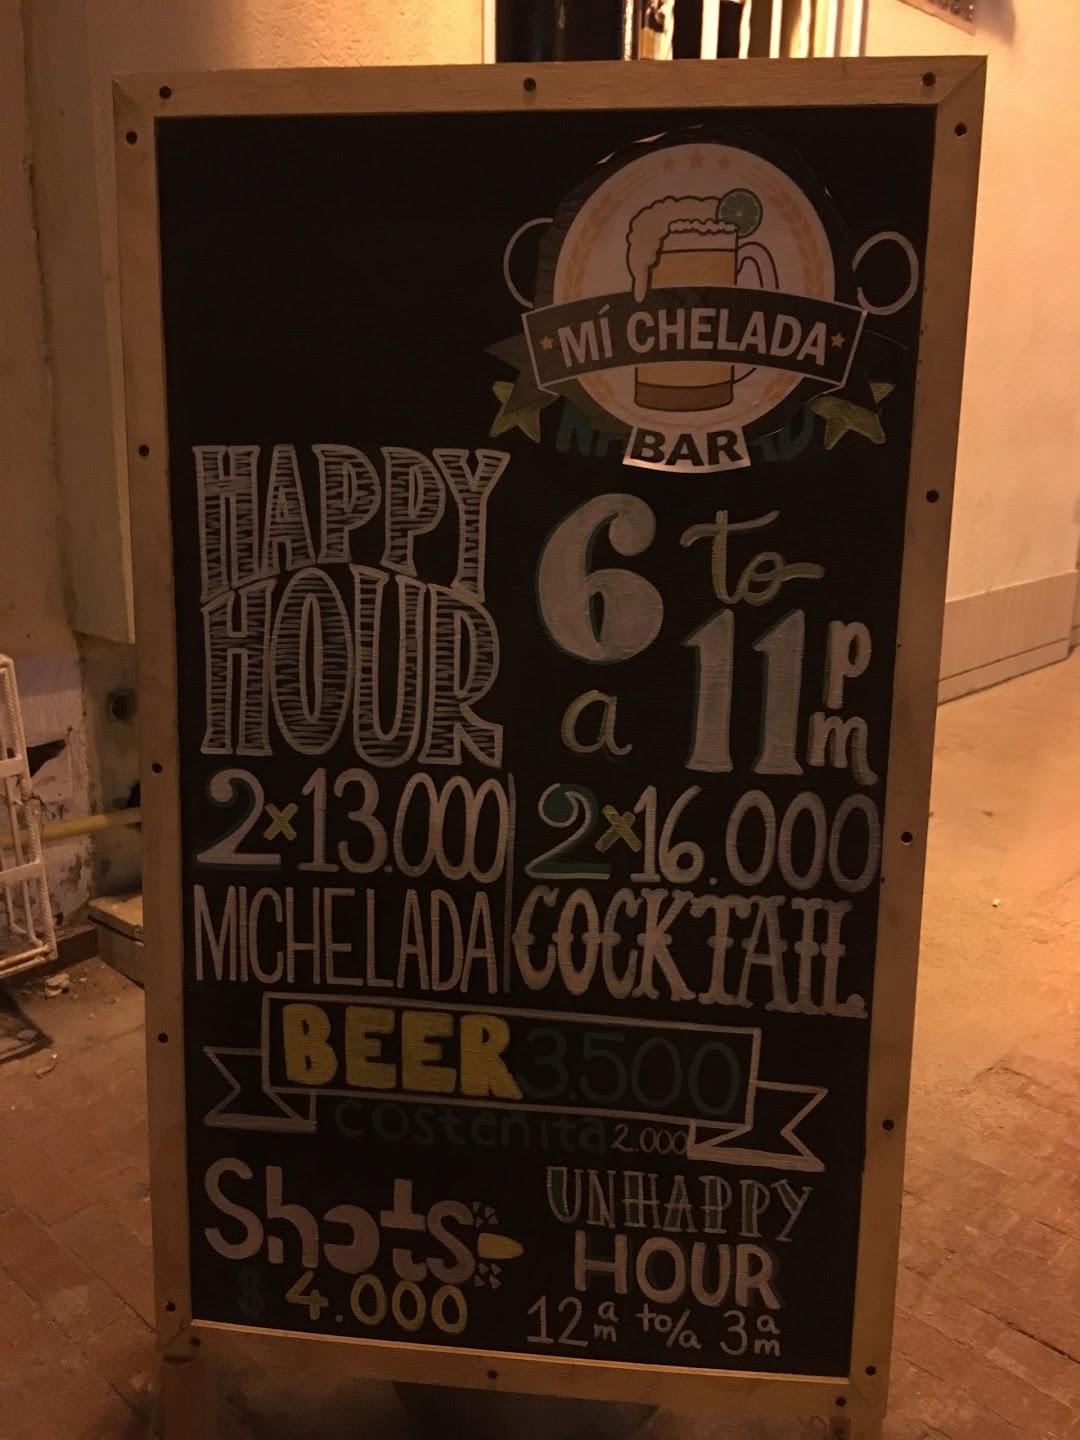 MÍ CHELADA
BAR
HAPPY
HOUR
6 to
a 11 pm
2x13.000
MICHELADA
2x16.000
COCKTAIL
BEER 3.500
costeñita 2.000
Shots
$ 4.000
UNHAPPY
HOUR
12 am to/a 3 am